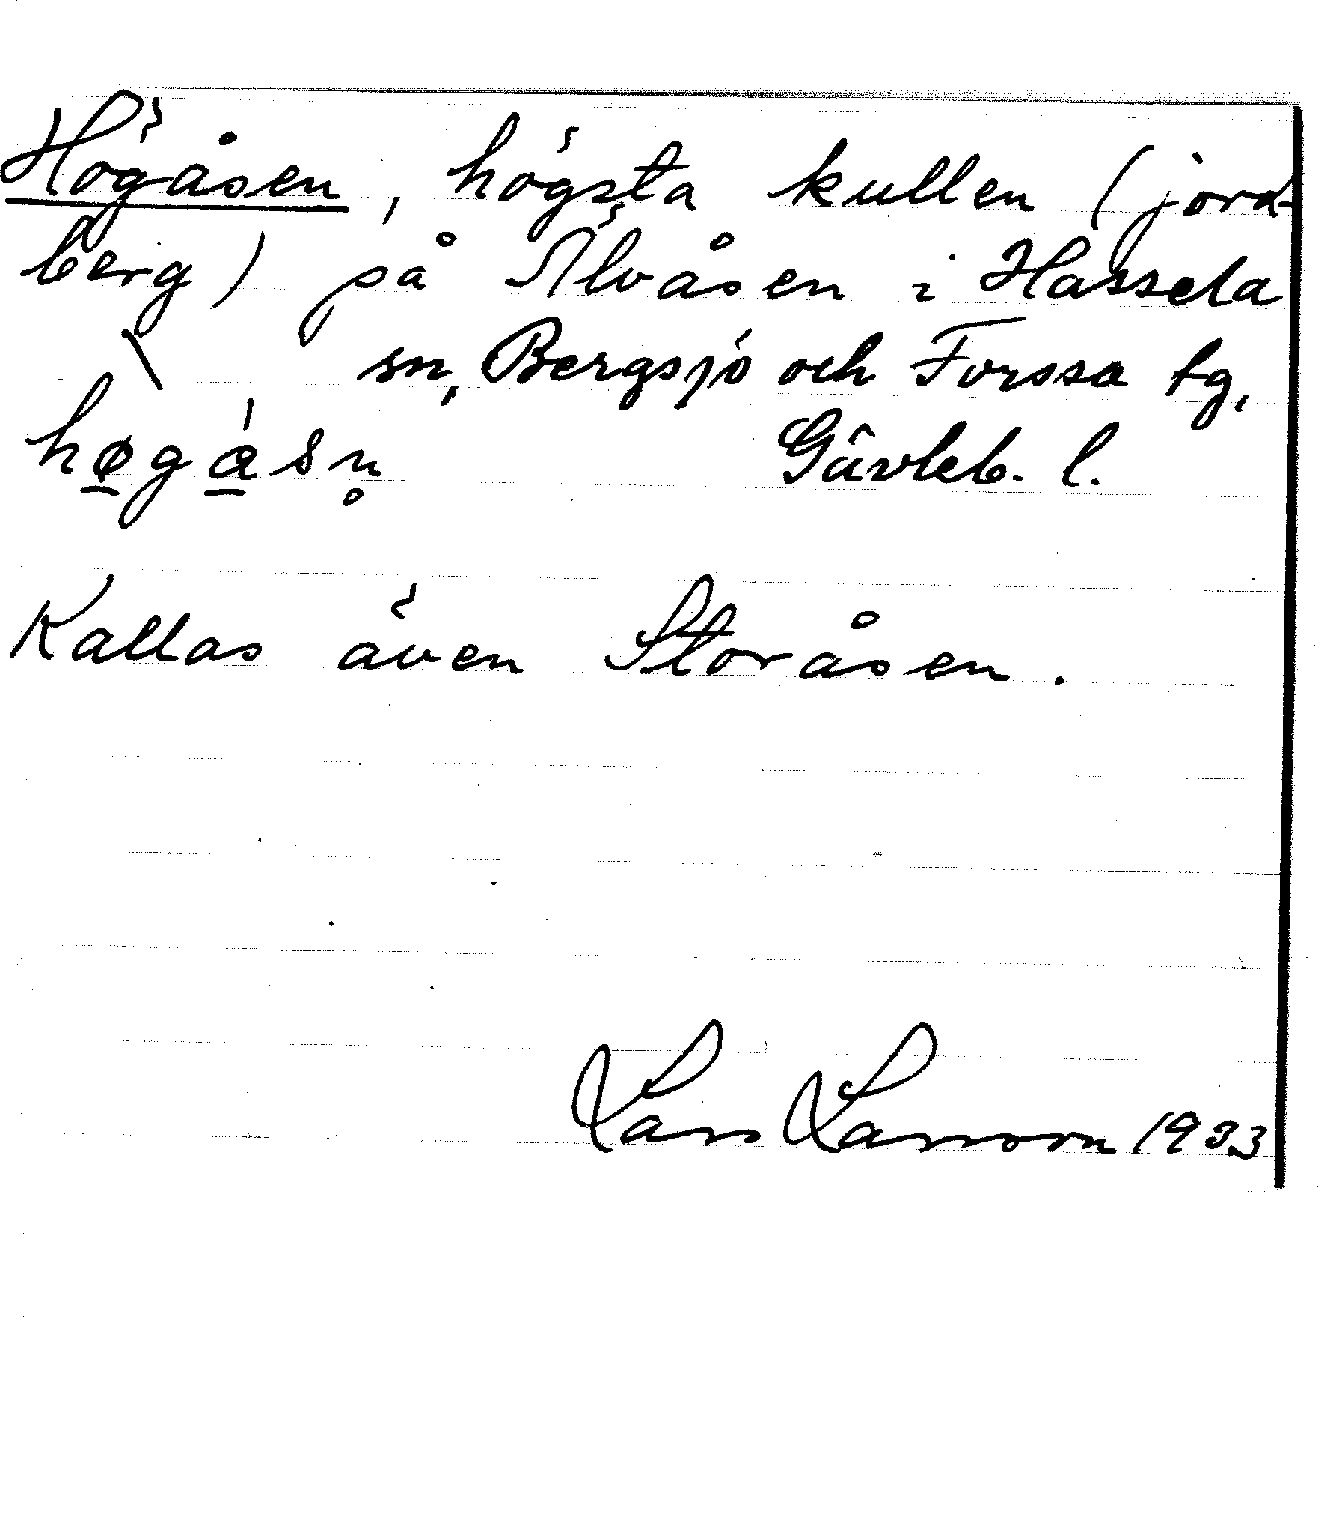 Högåsen, högsta kullen (jord-
berg) på Älvåsen i Hassela
sn, Bergsjö och Forssa tg,
høgåsn̥ Gävleb. l.
Kallas även Storåsen.
Lars Larsson 1933